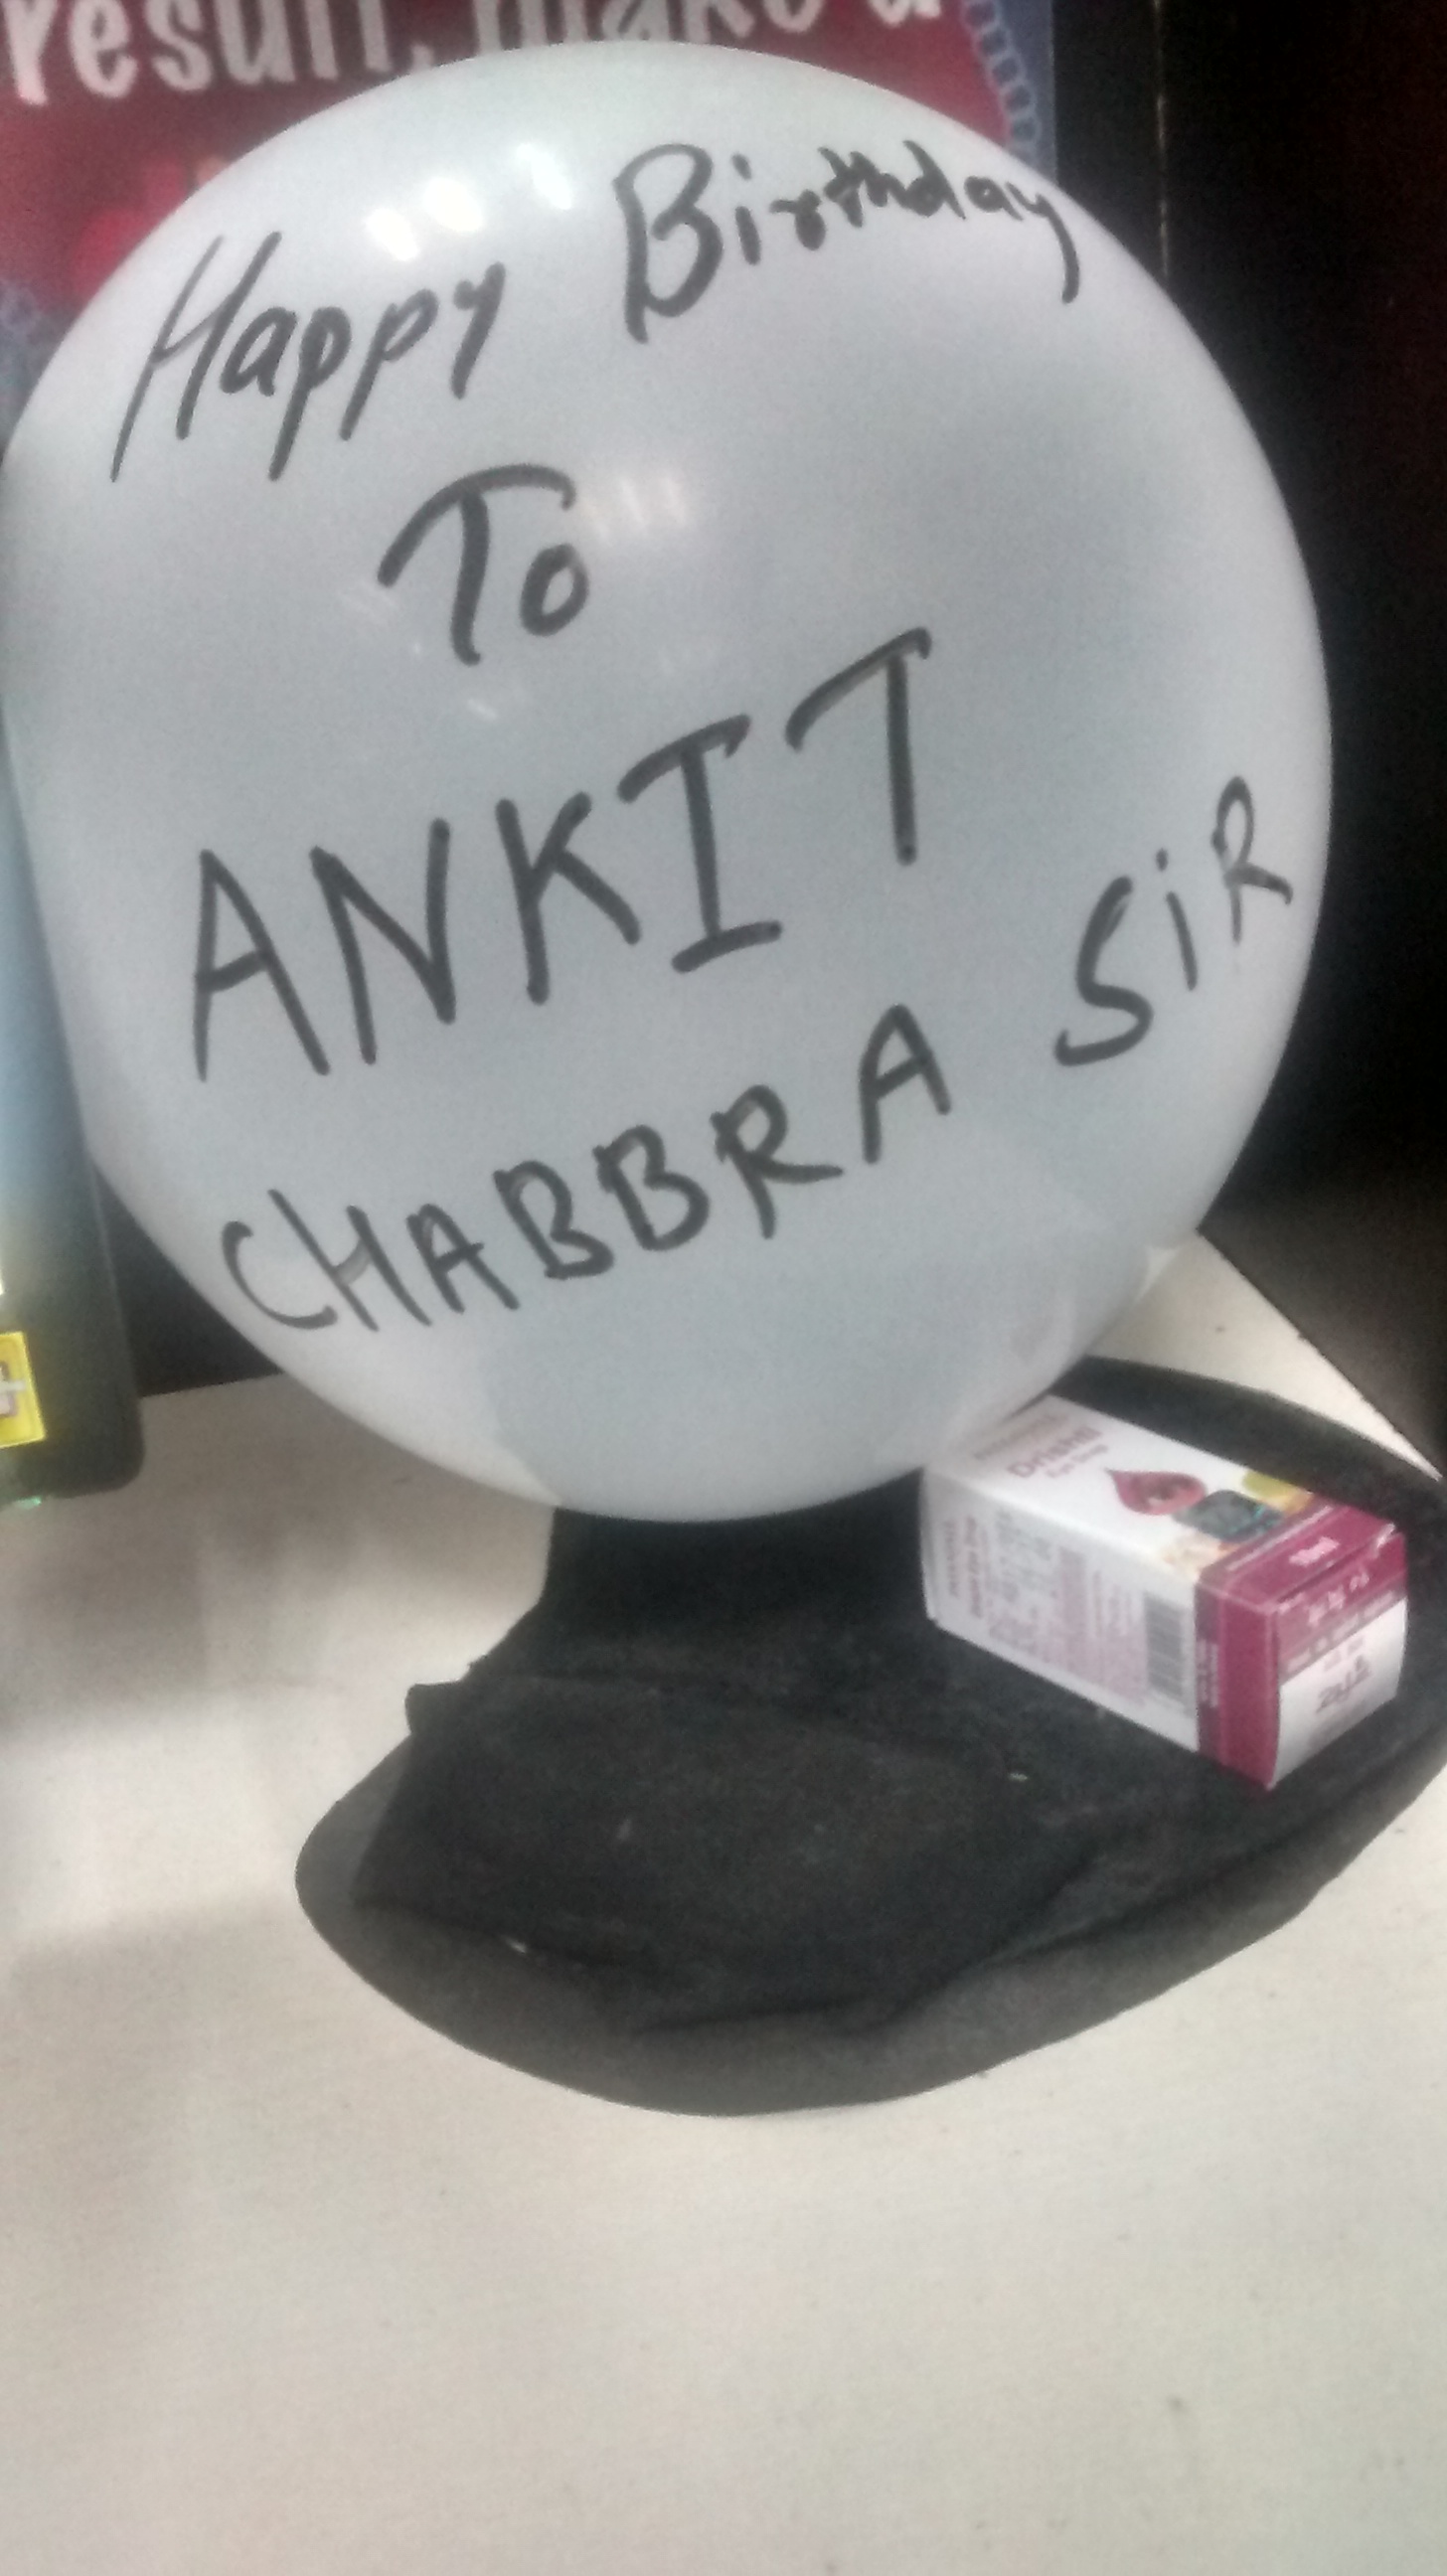 result, make a
Happy Birthday
To
ANKIT
CHABBRA SiR
Drishti
Eye Drop
10ml